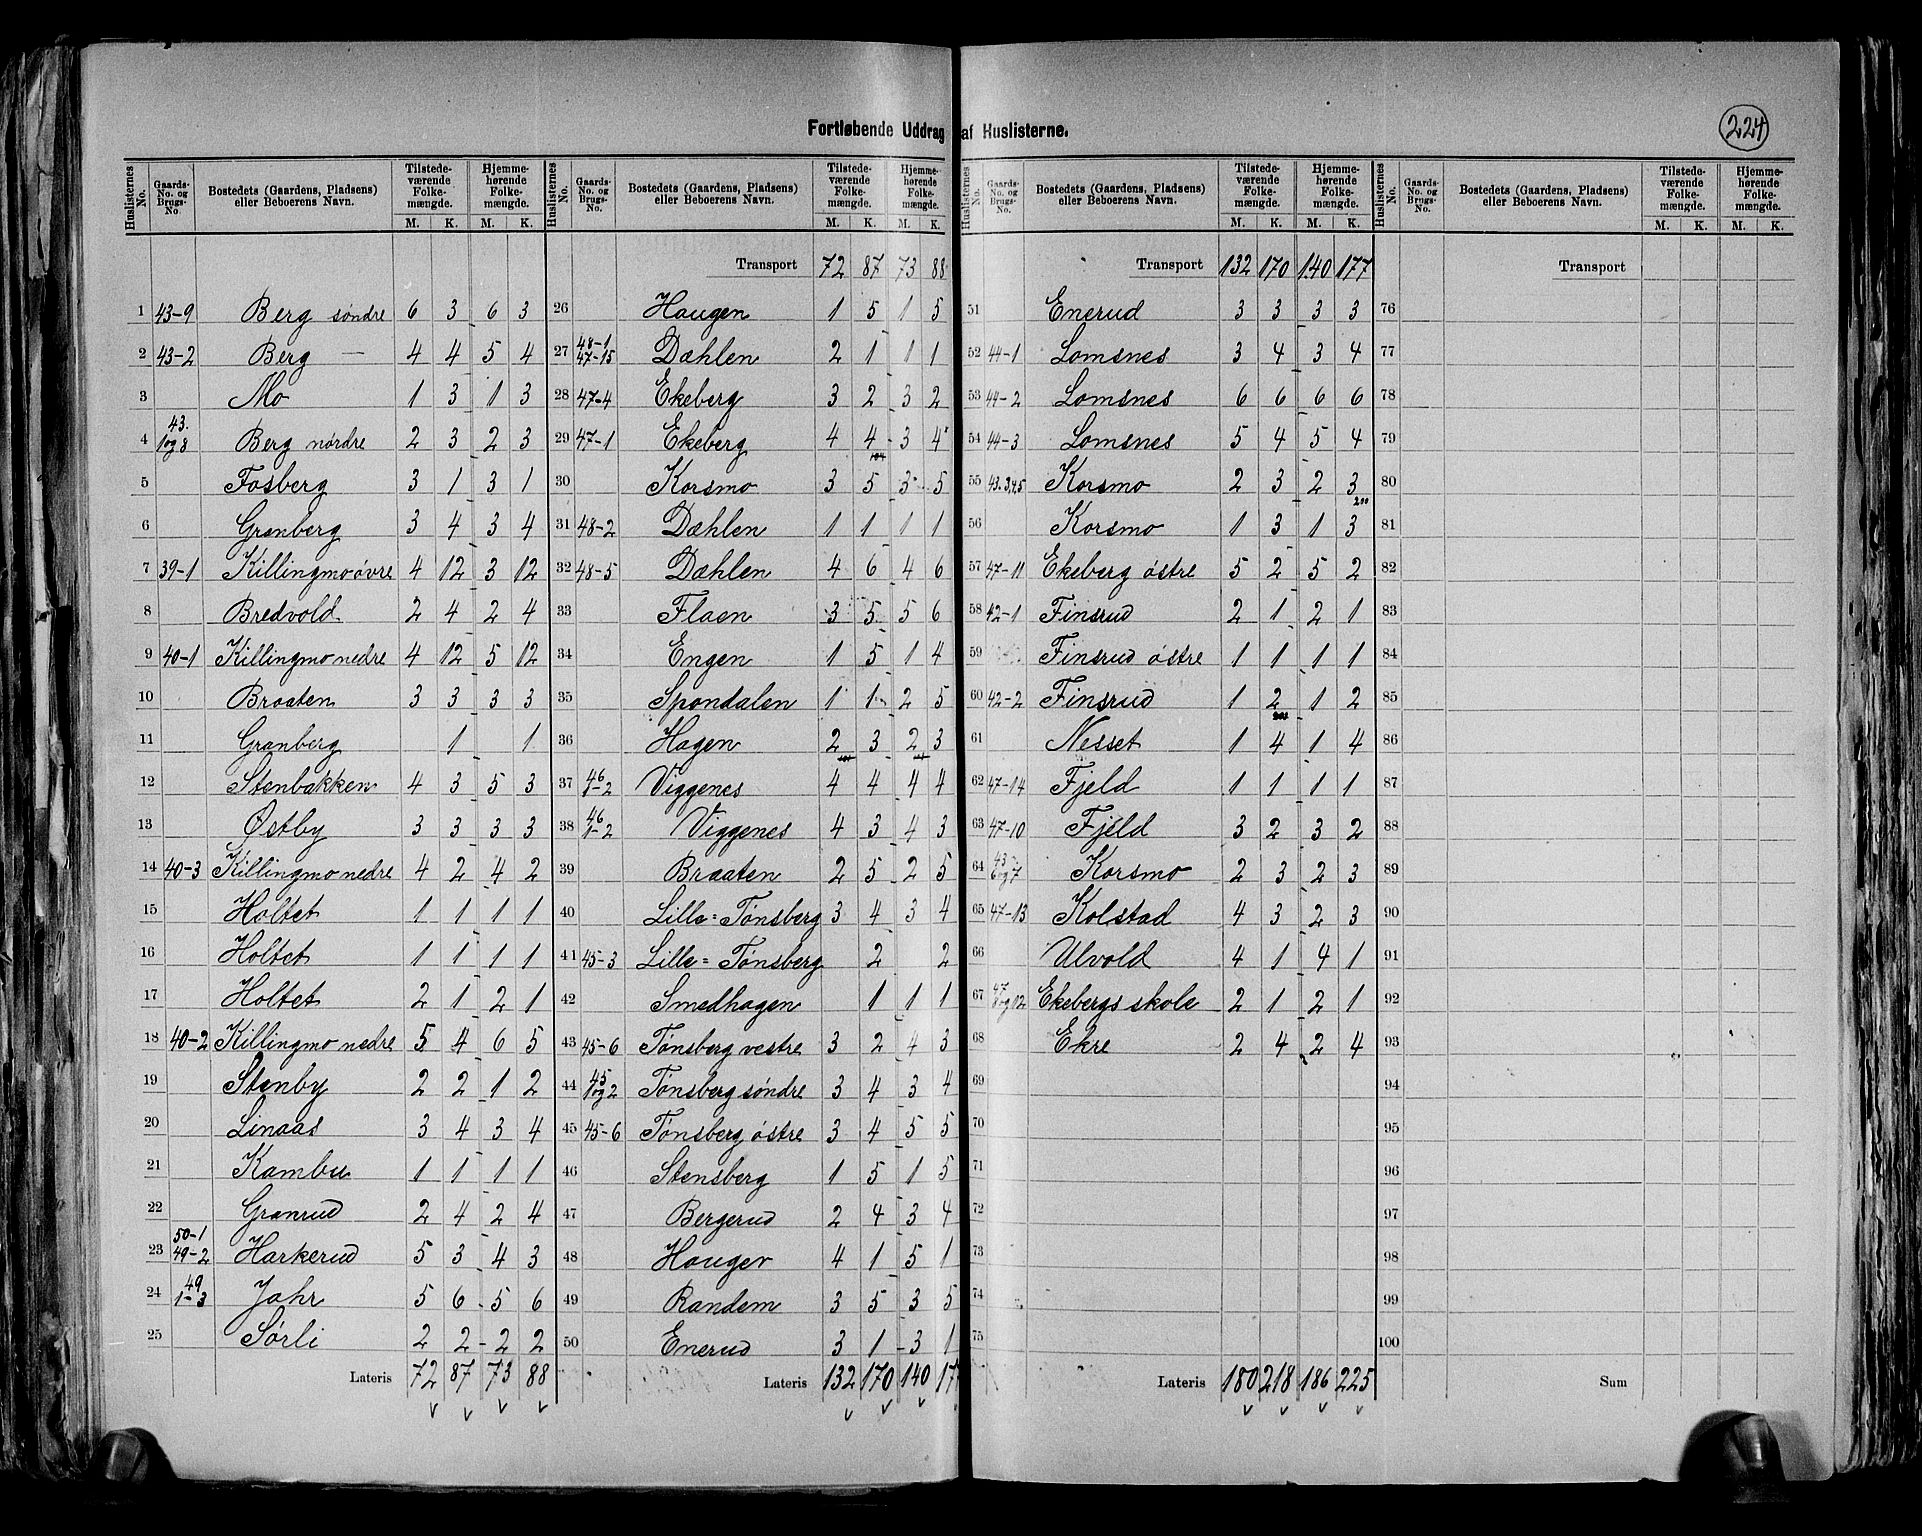 Fortløbende Uddrag af Huslisterne.
224
Huslisternes No. | Gaards-No. og Brugs-No. | Bostedets (Gaardens, Pladsens) eller Beboerens Navn. | Tilstedeværende Folkemængde. M. K. | Hjemmehørende Folkemængde. M. K.
1 43-9 Berg søndre 6 3 6 3
2 43-2 Berg — 4 4 5 4
3 Mo 1 3 1 3
4 43. 1og8 Berg nordre 2 3 2 3
5 Fosberg 3 1 3 1
6 Granberg 3 4 3 4
7 39-1 Killingmo øvre 4 12 3 12
8 Bredvold 2 4 2 4
9 40-1 Killingmo nedre 4 12 5 12
10 Braaten 3 3 3 3
11 Granberg 1 1
12 Stenbakken 4 3 5 3
13 Østby 3 3 3 3
14 40-3 Killingmo nedre 4 2 4 2
15 Holtet 1 1 1 1
16 Holtet 1 1 1 1
17 Holtet 2 1 2 1
18 40-2 Killingmo nedre 5 4 6 5
19 Stenby 2 2 1 2
20 Linaas 3 4 3 4
21 Kambu 1 1 1 1
22 Granrud 2 4 2 4
23 50-1 49-2 Harkerud 5 3 4 3
24 49 1-3 Jahr 5 6 5 6
25 Sørli 2 2 2 2
Lateris 72 87 73 88
Huslisternes No. | Gaards-No. og Brugs-No. | Bostedets (Gaardens, Pladsens) eller Beboerens Navn. | Tilstedeværende Folkemængde. M. K. | Hjemmehørende Folkemængde. M. K.
Transport 72 87 73 88
26 Haugen 1 5 1 5
27 48-1 47-15 Dæhlen 2 1 1 1
28 47-4 Ekeberg 3 2 3 2
29 47-1 Ekeberg 4 4 3 4
30 Korsmo 3 5 3 5
31 48-2 Dæhlen 1 1 1 1
32 48-5 Dæhlen 4 6 4 6
33 Flaen 3 5 5 6
34 Engen 1 5 1 4
35 Spondalen 1 1 2 5
36 Hagen 2 3 2 3
37 46 1-2 Viggenes 4 4 4 4
38 46 1-2 Viggenes 4 3 4 3
39 Braaten 2 5 2 5
40 Lille=Tønsberg 3 4 3 4
41 45-3 Lille=Tønsberg 2 2
42 Smedhagen 1 1 1
43 45-6 Tønsberg vestre 3 2 4 3
44 45 1og2 Tønsberg søndre 3 4 3 4
45 45-6 Tønsberg østre 3 4 5 5
46 Stensberg 1 5 1 5
47 Bergerud 2 4 3 4
48 Hauger 4 1 5 1
49 Randem 3 5 3 5
50 Enerud 3 1 3 1
Lateris 132 170 140 17
Huslisternes No. | Gaards-No. og Brugs-No. | Bostedets (Gaardens, Pladsens) eller Beboerens Navn. | Tilstedeværende Folkemængde. M. K. | Hjemmehørende Folkemængde. M. K.
Transport 132 170 140 177
51 Enerud 3 3 3 3
52 44-1 Lomsnes 3 4 3 4
53 44-2 Lomsnes 6 6 6 6
54 44-3 Lomsnes 5 4 5 4
55 43.3,4,5 Korsmo 2 3 2 3
56 Korsmo 1 3 1 3
57 47-11 Ekeberg østre 5 2 5 2
58 42-1 Finsrud 2 1 2 1
59 Finsrud østre 1 1 1 1
60 42-2 Finsrud 1 2 1 2
61 Nesset 1 4 1 4
62 47-14 Fjeld 1 1 1 1
63 47-10 Fjeld 3 2 3 2
64 43- 6og7 Korsmo 2 3 2 3
65 47-13 Kolstad 4 3 2 3
66 Ulvold 4 1 4 1
67 47 8og12 Ekebergs skole 2 1 2 1
68 Ekre 2 4 2 4
69
70
71
72
73
74
75
Lateris 180 218 186 225
Huslisternes No. | Gaards-No. og Brugs-No. | Bostedets (Gaardens, Pladsens) eller Beboerens Navn. | Tilstedeværende Folkemængde. M. K. | Hjemmehørende Folkemængde. M. K.
Transport
76
77
78
79
80
81
82
83
84
85
86
87
88
89
90
91
92
93
94
95
96
97
98
99
100
Sum